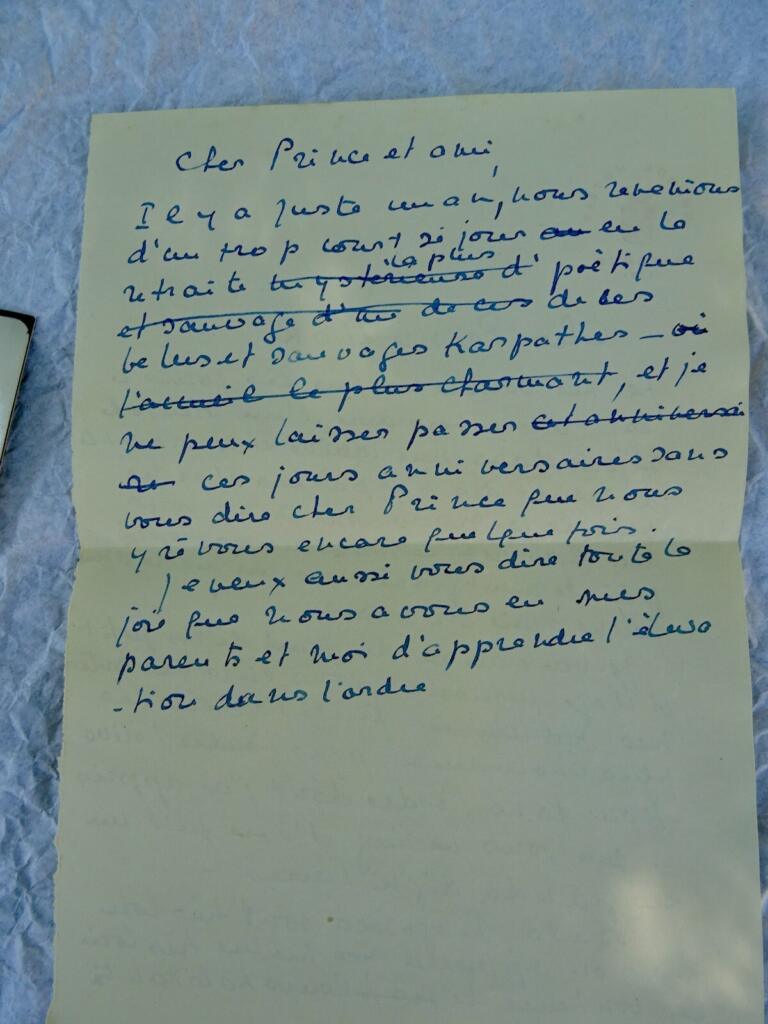 Cher Prince et ami,
Il y a juste un an, nous revenions
d'un trop court séjour au en la
la plus
retraite mystérieuse d' poêtique
et sauvage d'un de ces de ces
belles et sauvages Karpathes - où
l'accueil le plus charmant, et je
ne peux laisser passer cet anniversai
re ces jours anniversaires sans
vous dire cher Prince que nous
y rêvons encore quelque fois.
Je veux aussi vous dire toute la
joie que nous avons eu mes
parents et moi d'apprendre l'éleva
-tion dans l'ordre